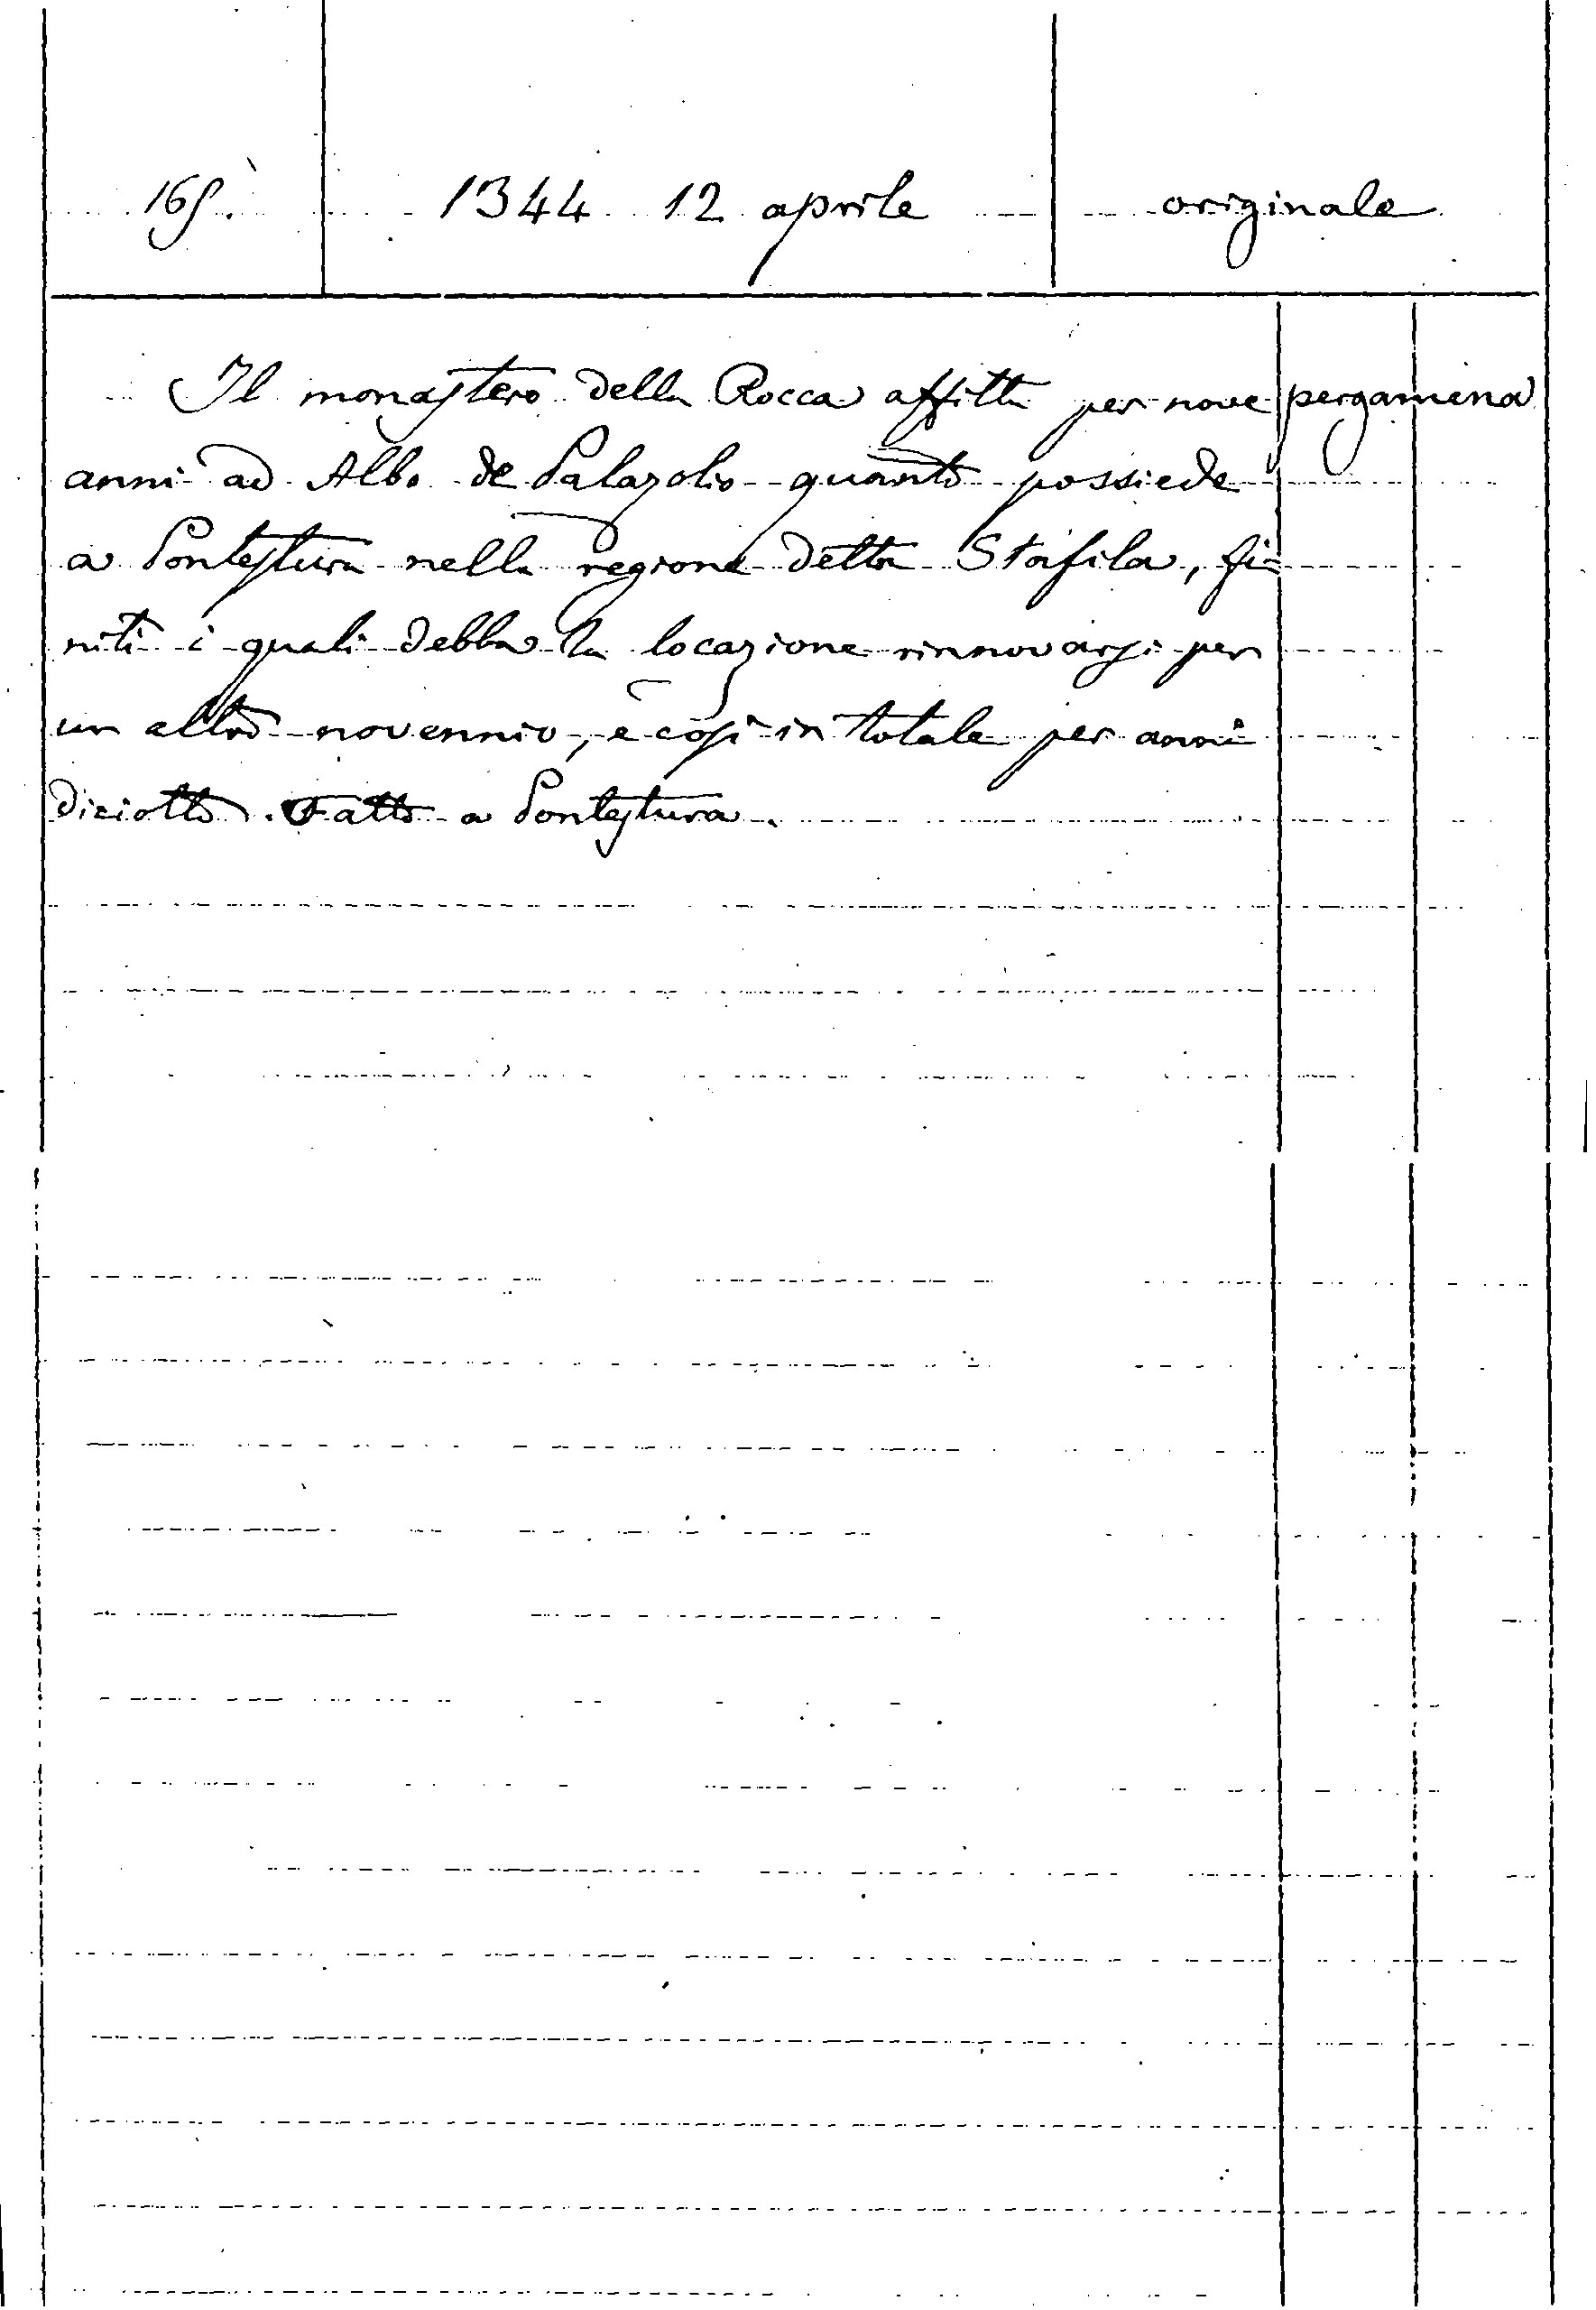 165. 1344 12 aprile originale
Il monastero della Rocca affitta per nove pergamena
anni ad Albo de Palazolio quanto possiede
a Pontestura nella regione detta Stafila, fi=
niti i quali debba la locazione rinnovarsi per
un altro novennio, e così in totale per anni
diciotto. Fatto a Pontestura.